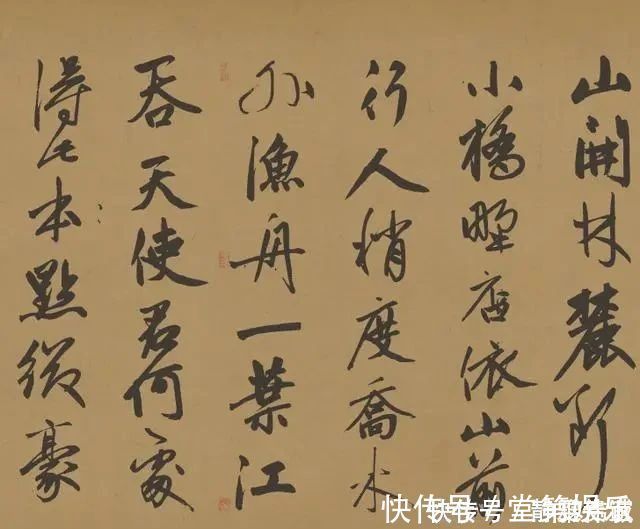 山開林麓斷
小橋野店依山前
行人稍度喬木
外漁舟一葉江
吞天使君何處
得此本點綴豪
快传号